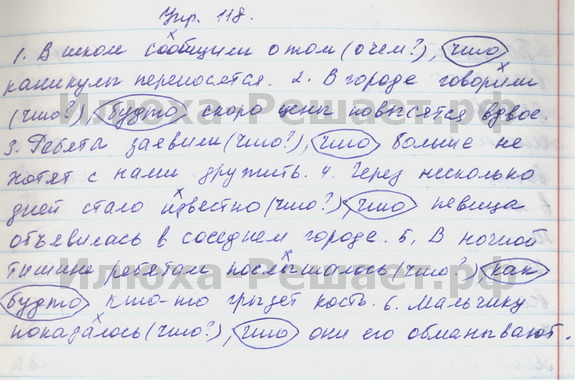 Упр. 118.
1. В школе сообщили о том (о чем?), что
каникулы переносятся. 2. В городе говорили
(что?), будто скоро цены повысятся вдвое.
3. Ребята заявили (что?), что больше не
хотят с нами дружить. 4. Через несколько
дней стало известно (что?), что певица
объявилась в соседнем городе. 5. В ночной
тишине ребятам послышалось (что?) как
будто кто-то грызет кость. 6. Мальчику
показалось (что?), что они его обманывают.
Илюха-Решает.рф
Илюха-Решает.рф